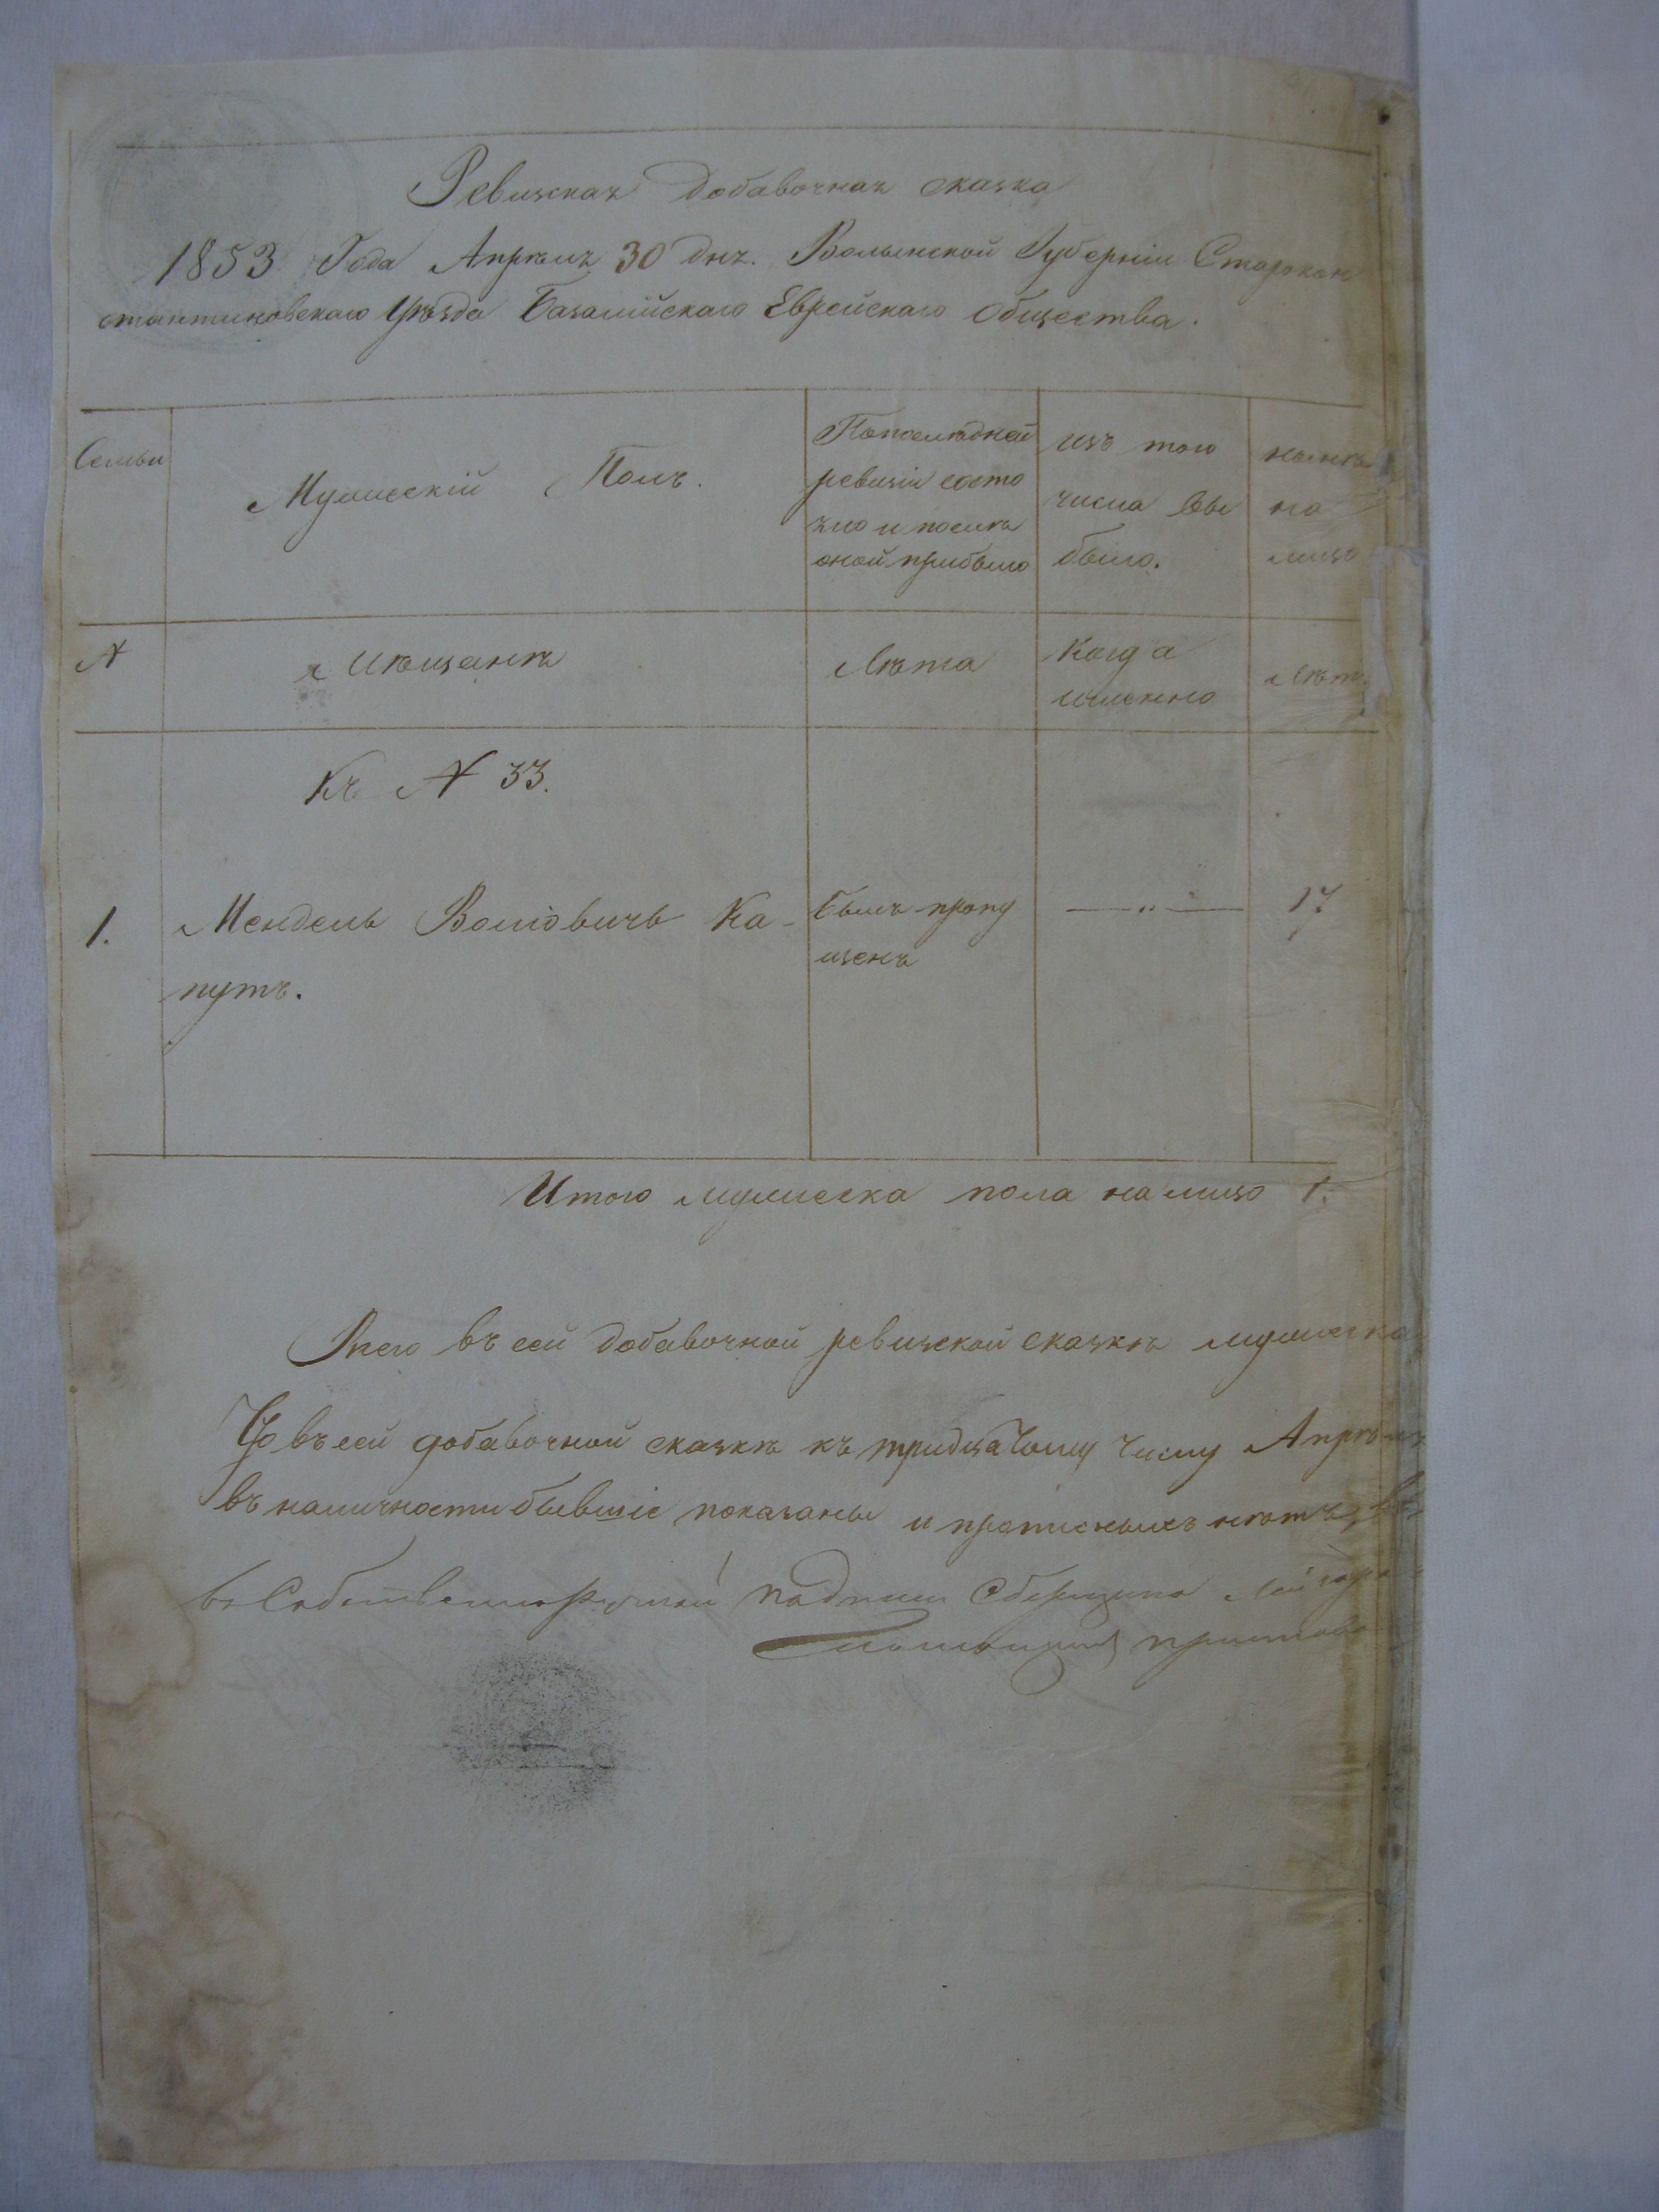 Ревизская добавочная сказка
1853 Года Апрѣля 30 дня. Волынской Губерніи Старокон
стантиновскаго Уѣзда Базалійскаго Еврейскаго Общества.
Семьи
Мужескій Полъ.
По последней
ревизіи состо
яло и после
оной прибыло
изъ того
числа вы
было.
нынѣ
на
лицо
№
мѣщанѣ
Лѣта
Когда
имянно
Лѣт.
Къ № 33.
1. Мендель Волювичь Ка-
путъ.
былъ пропу
щенъ
— „ —
17
Итого мужеска пола на лицо 1.
Всего въ сей добавочной ревизской сказкѣ мужеска
Что въ сей добавочной сказкѣ къ тридцатому числу Апрѣля
въ наличности бывшіе показаны и прописныхъ нѣтъ,
подписи